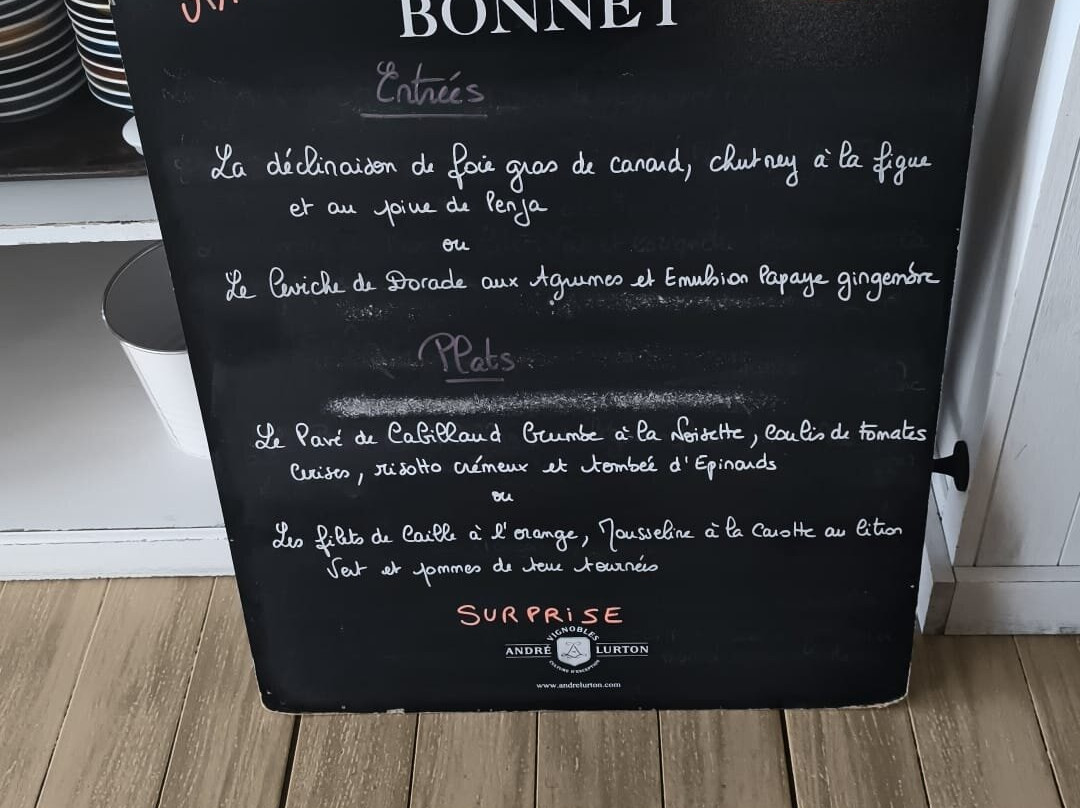 BONNET
Entrées
La déclinaison de foie gras de canard, chutney à la figue
et au poivre de Penja
ou
Le Ceviche de Dorade aux Agrumes et Emulsion Papaye gingembre
Plats
Le Pavé de Cabillaud Crumble à la Noisette, Coulis de Tomates
Cerises, risotto crémeux et tombée d'Epinards
ou
Les filets de Caille à l'orange, Mousseline à la Carotte au Citron
Vert et pommes de terre tournées
SURPRISE
VIGNOBLES
ANDRÉ LURTON
CULTURE D'EXCEPTION
www.andrelurton.com